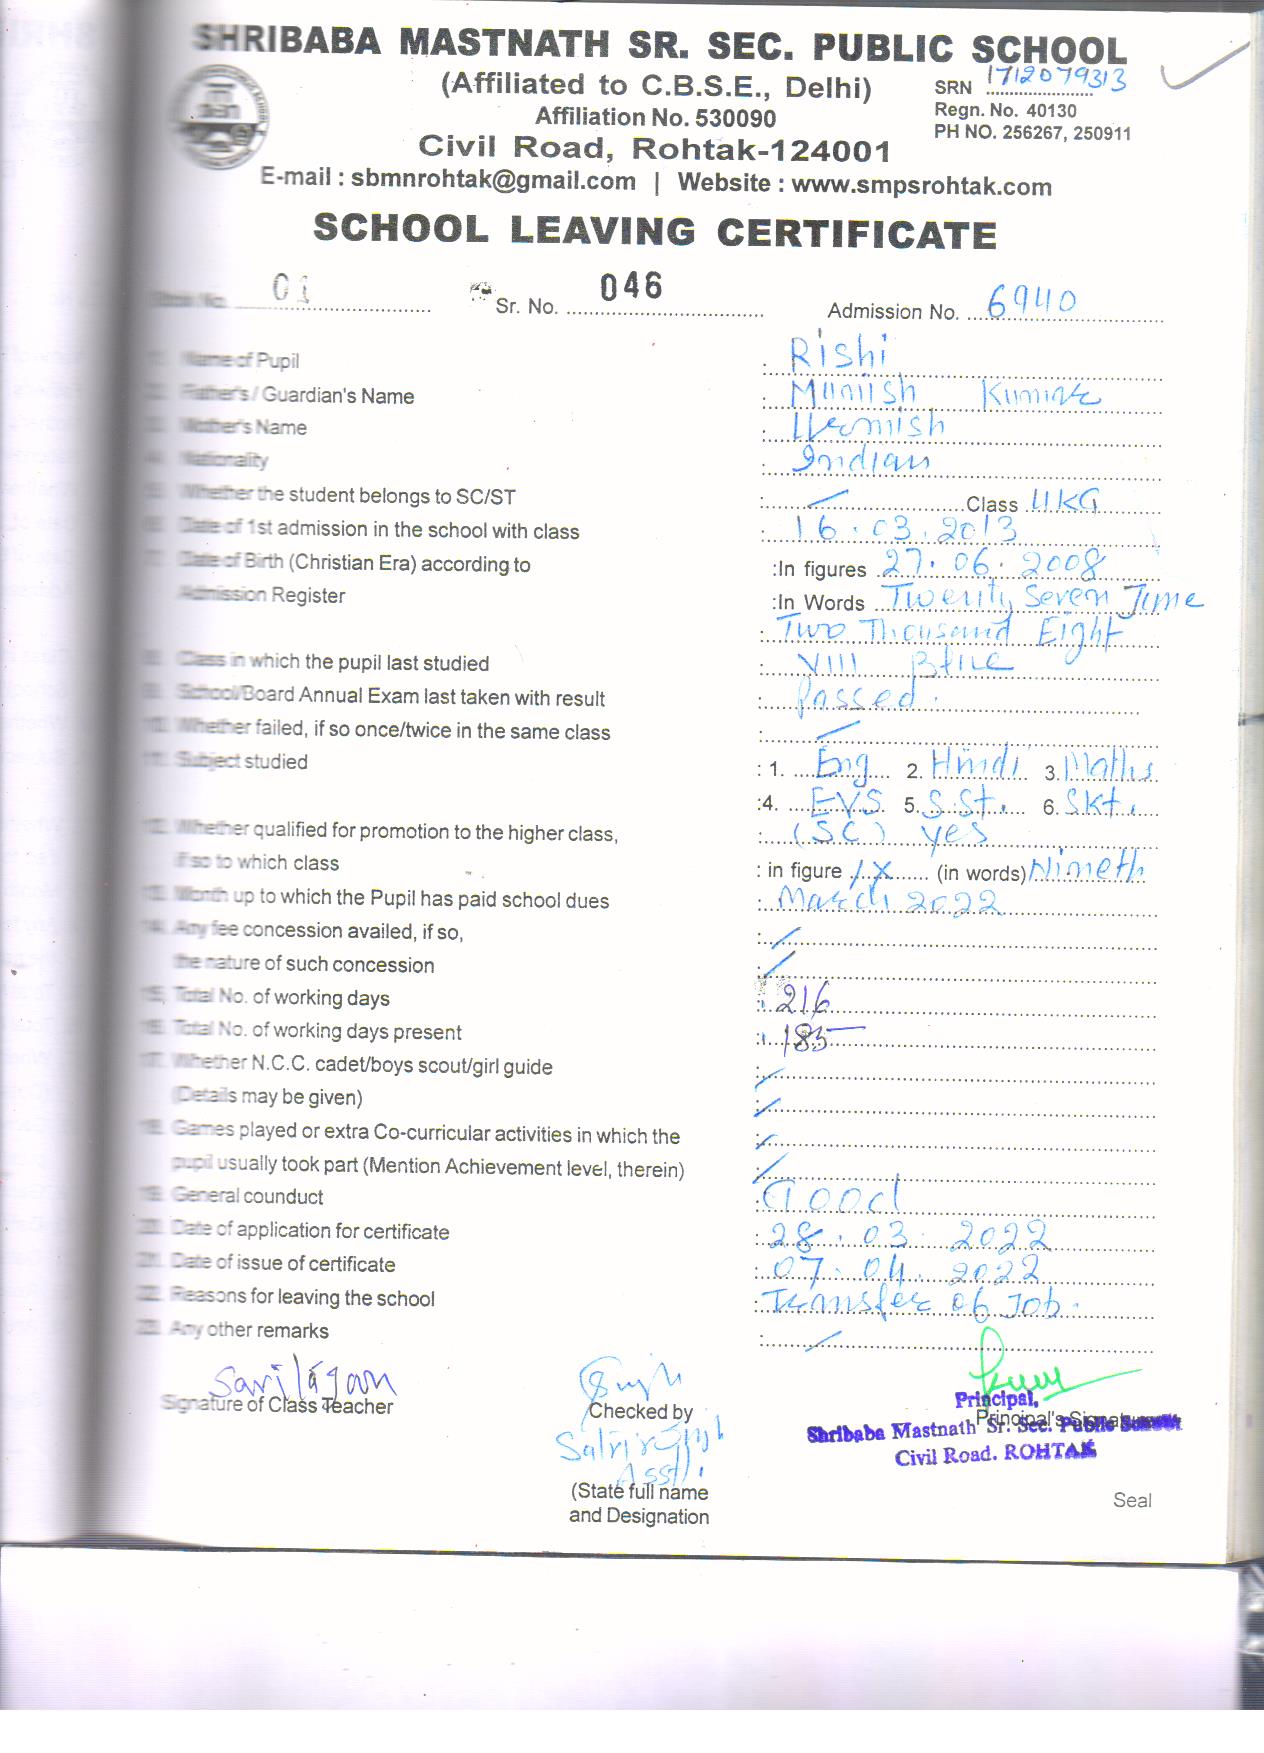 SHRIBABA MASTNATH SR. SEC. PUBLIC SCHOOL
(Affiliated to C.B.S.E., Delhi)
SRN 1712079313
Affiliation No. 530090
Regn. No. 40130
PH NO. 256267, 250911
Civil Road, Rohtak-124001
E-mail : sbmnrohtak@gmail.com | Website : www.smpsrohtak.com
SCHOOL LEAVING CERTIFICATE
No. 01 Sr. No. 046 Admission No. 6940
Name of Pupil : Rishi
Father's / Guardian's Name : Munish Kumar
Mother's Name :
Nationality : Indian
Whether the student belongs to SC/ST : Class UKG
Date of 1st admission in the school with class : 16.03.2013
Date of Birth (Christian Era) according to :In figures 27.06.2008
Admission Register :In Words Twenty Seven June
: Two Thousand Eight
Class in which the pupil last studied : VIII Blue
School/Board Annual Exam last taken with result : Passed.
10. Whether failed, if so once/twice in the same class :
11. Subject studied : 1. Eng 2. Hindi 3. Maths
:4. EVS 5. S.St. 6. Skt.
12. Whether qualified for promotion to the higher class, : (SC) yes
if so to which class : in figure IX (in words) Nineth
13. Month up to which the Pupil has paid school dues : March 2022
14. Any fee concession availed, if so, :
the nature of such concession :
15. Total No. of working days : 216
16. Total No. of working days present : 185
17. Whether N.C.C. cadet/boys scout/girl guide :
(Details may be given) :
18. Games played or extra Co-curricular activities in which the :
pupil usually took part (Mention Achievement level, therein) :
19. General counduct : Good
20. Date of application for certificate : 28.03.2022
21. Date of issue of certificate : 07.04.2022
22. Reasons for leaving the school : Transfer of Job.
23. Any other remarks :
Signature of Class Teacher
Checked by
Principal,
Principal's Signature
Shribaba Mastnath Sr. Sec. Public School
Civil Road. ROHTAK
Asstt.
(State full name
and Designation
Seal